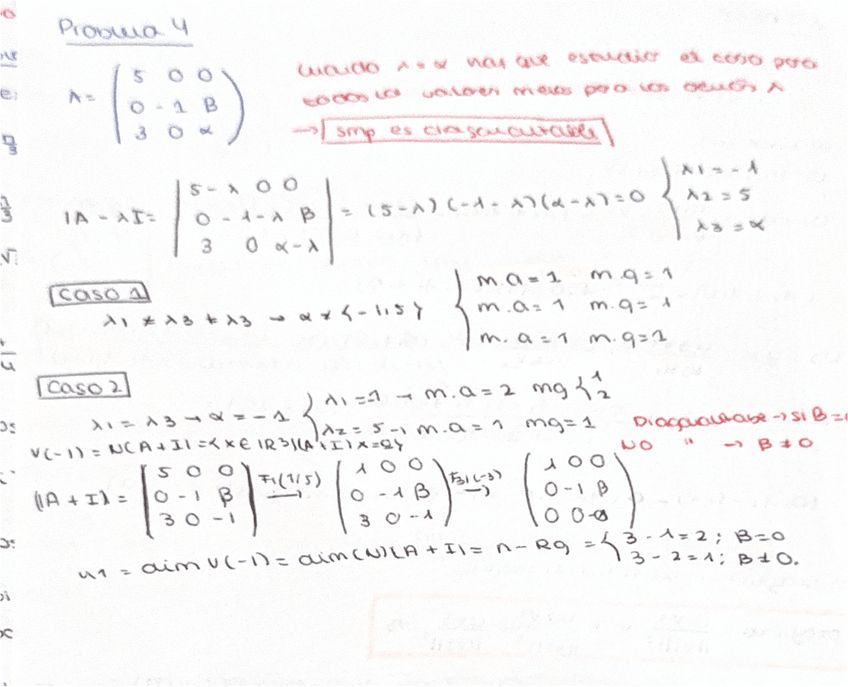 Problema 4
A = ( 5 0 0 / 0 -1 B / 3 0 α )
cuando λ = α hay que estudiar el caso para
todos los valores menos para los demás λ
→ smp es diagonalizable
|A - λI = | 5-λ 0 0 / 0 -1-λ B / 3 0 α-λ | = (5-λ)(-1-λ)(α-λ) = 0 { λ1 = -1 / λ2 = 5 / λ3 = α
Caso 1
λ1 ≠ λ3 ≠ λ3 → α ≠ {-1,5} { m.a = 1 m.g = 1 / m.a = 1 m.g = 1 / m.a = 1 m.g = 1
Caso 2
λ1 = λ3 → α = -1 { λ1 = -1 → m.a = 2 mg { 1 / 2 / λ2 = 5 → m.a = 1 mg = 1
Diagonalizable → si B =
NO " → B ≠ 0
V(-1) = N(A + I) = {x ∈ IR3 | (A + I) x = 0}
(A + I) = ( 5 0 0 / 0 -1 B / 3 0 -1 ) F1(1/5) → ( 1 0 0 / 0 -1 B / 3 0 -1 ) F31(-3) → ( 1 0 0 / 0 -1 B / 0 0 )
u1 = dim V(-1) = dim(N)(A + I) = n - Rg = { 3 - 1 = 2; B = 0 / 3 - 2 = 1; B ≠ 0.